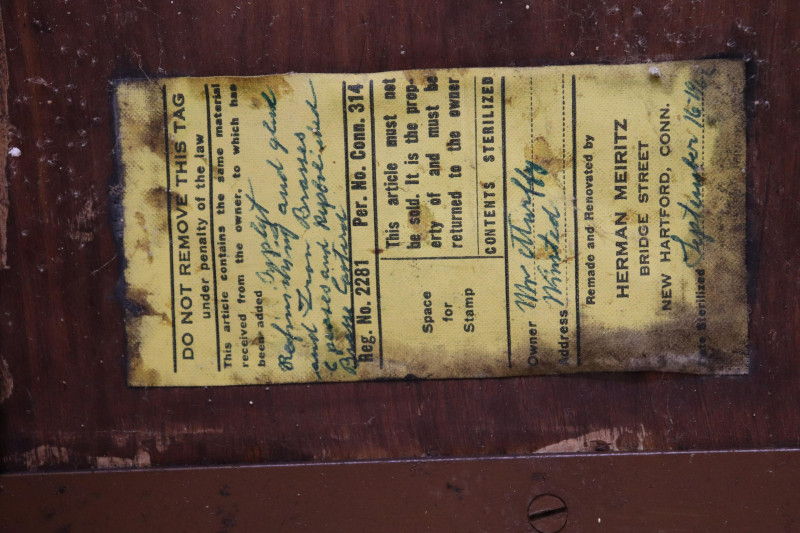 DO NOT REMOVE THIS TAG
under penalty of the law
This article contains the same material
received from the owner, to which has
been added
Refinishing and glued
and Iron Braces
and
Reg. No. 2281 Per. No. Conn. 314
Space
for
Stamp
This article must not
be sold. It is the prop-
erty of and must be
returned to the owner
CONTENTS STERILIZED
Owner Wm Murphy
Address Winsted
Remade and Renovated by
HERMAN MEIRITZ
BRIDGE STREET
NEW HARTFORD, CONN.
Sterilized September 16